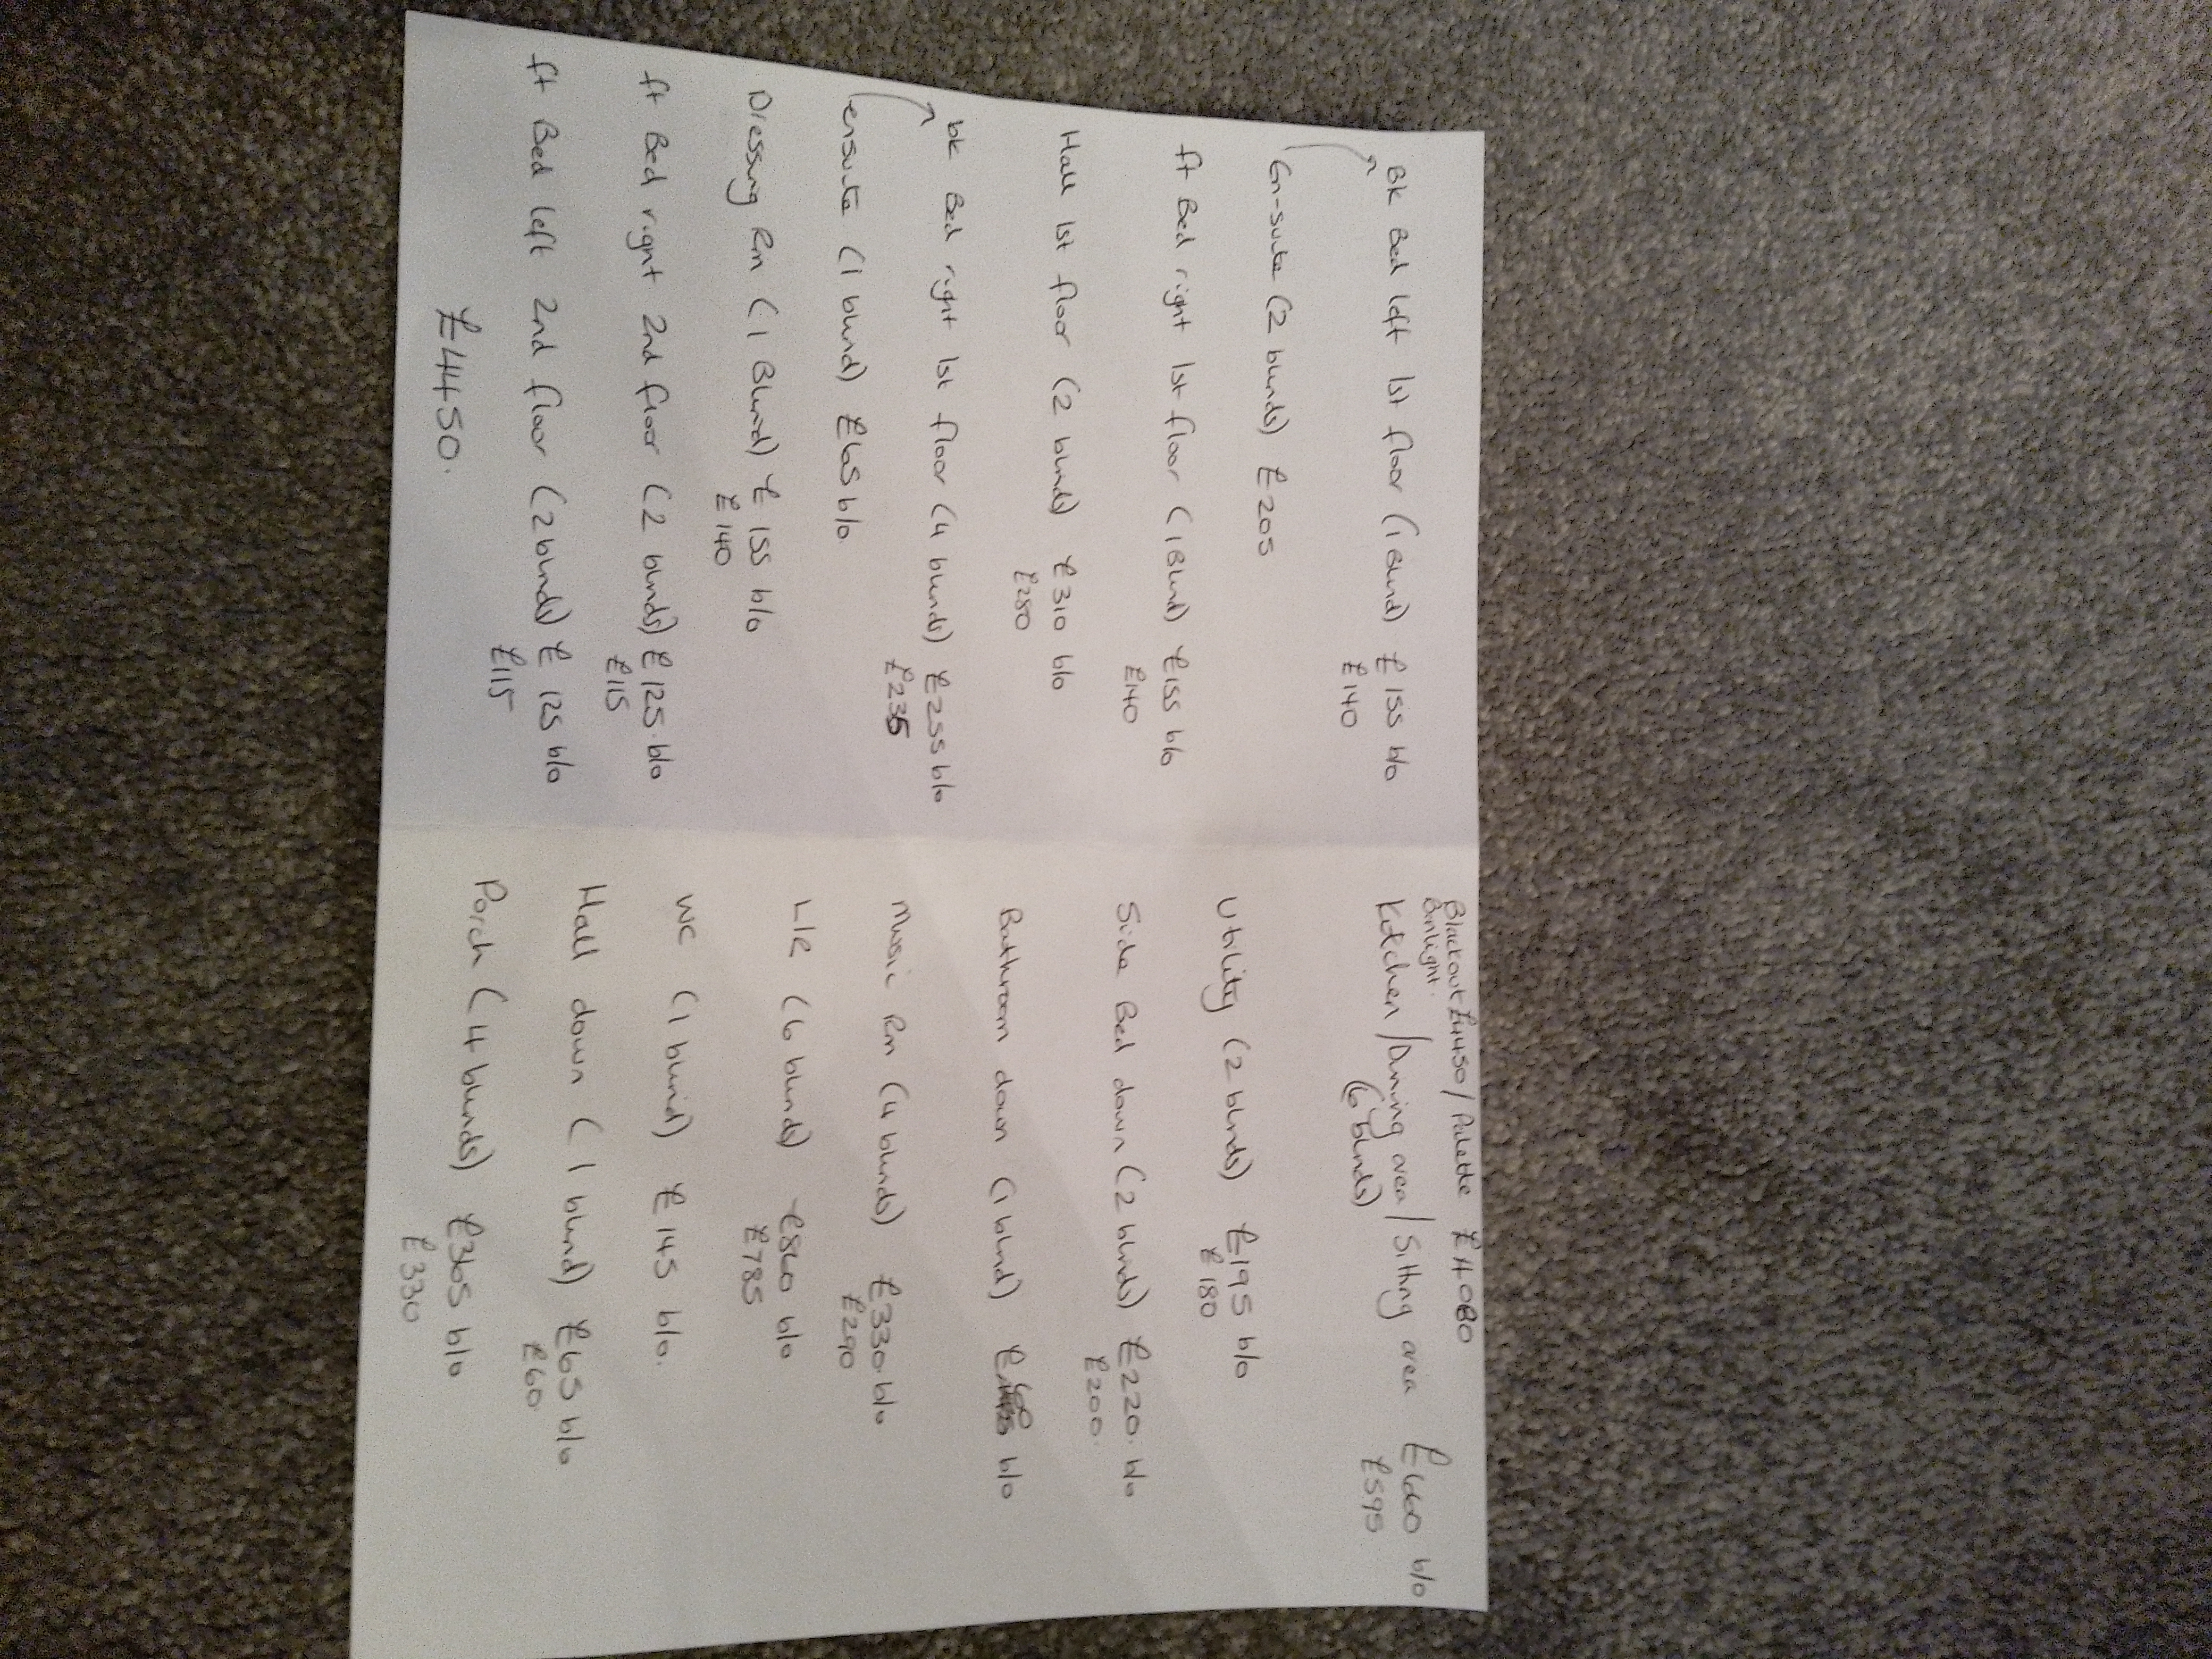 Bk Bed left 1st floor (1 Blind) £155 b/o
£140
En-suite (2 blinds) £205
ft Bed right 1st floor (1 Blind) £155 b/o
£140
Hall 1st floor (2 blinds) £310 b/o
£280
bk Bed right 1st floor (4 blinds) £255 b/o
£235
ensuite (1 blind) £65 b/o
Dressing Rm (1 Blind) £155 b/o
£140
ft Bed right 2nd floor (2 blinds) £125 b/o
£115
ft Bed left 2nd floor (2 blinds) £125 b/o
£115
£4450.
Blackout £4450 / Palette £4080
Kitchen / Dinning area / Sitting area £660 b/o
(6 blinds) £595
Utility (2 blinds) £195 b/o
£180
Side Bed down (2 blinds) £220 b/o
£200.
Bathroom down (1 blind) b/o
Music Rm (4 blinds) £330 b/o
£290
L/R (6 blinds) £860 b/o
£785
WC (1 blind) £145 b/o.
Hall down (1 blind) £65 b/o
£60
Porch (4 blinds) £365 b/o
£330